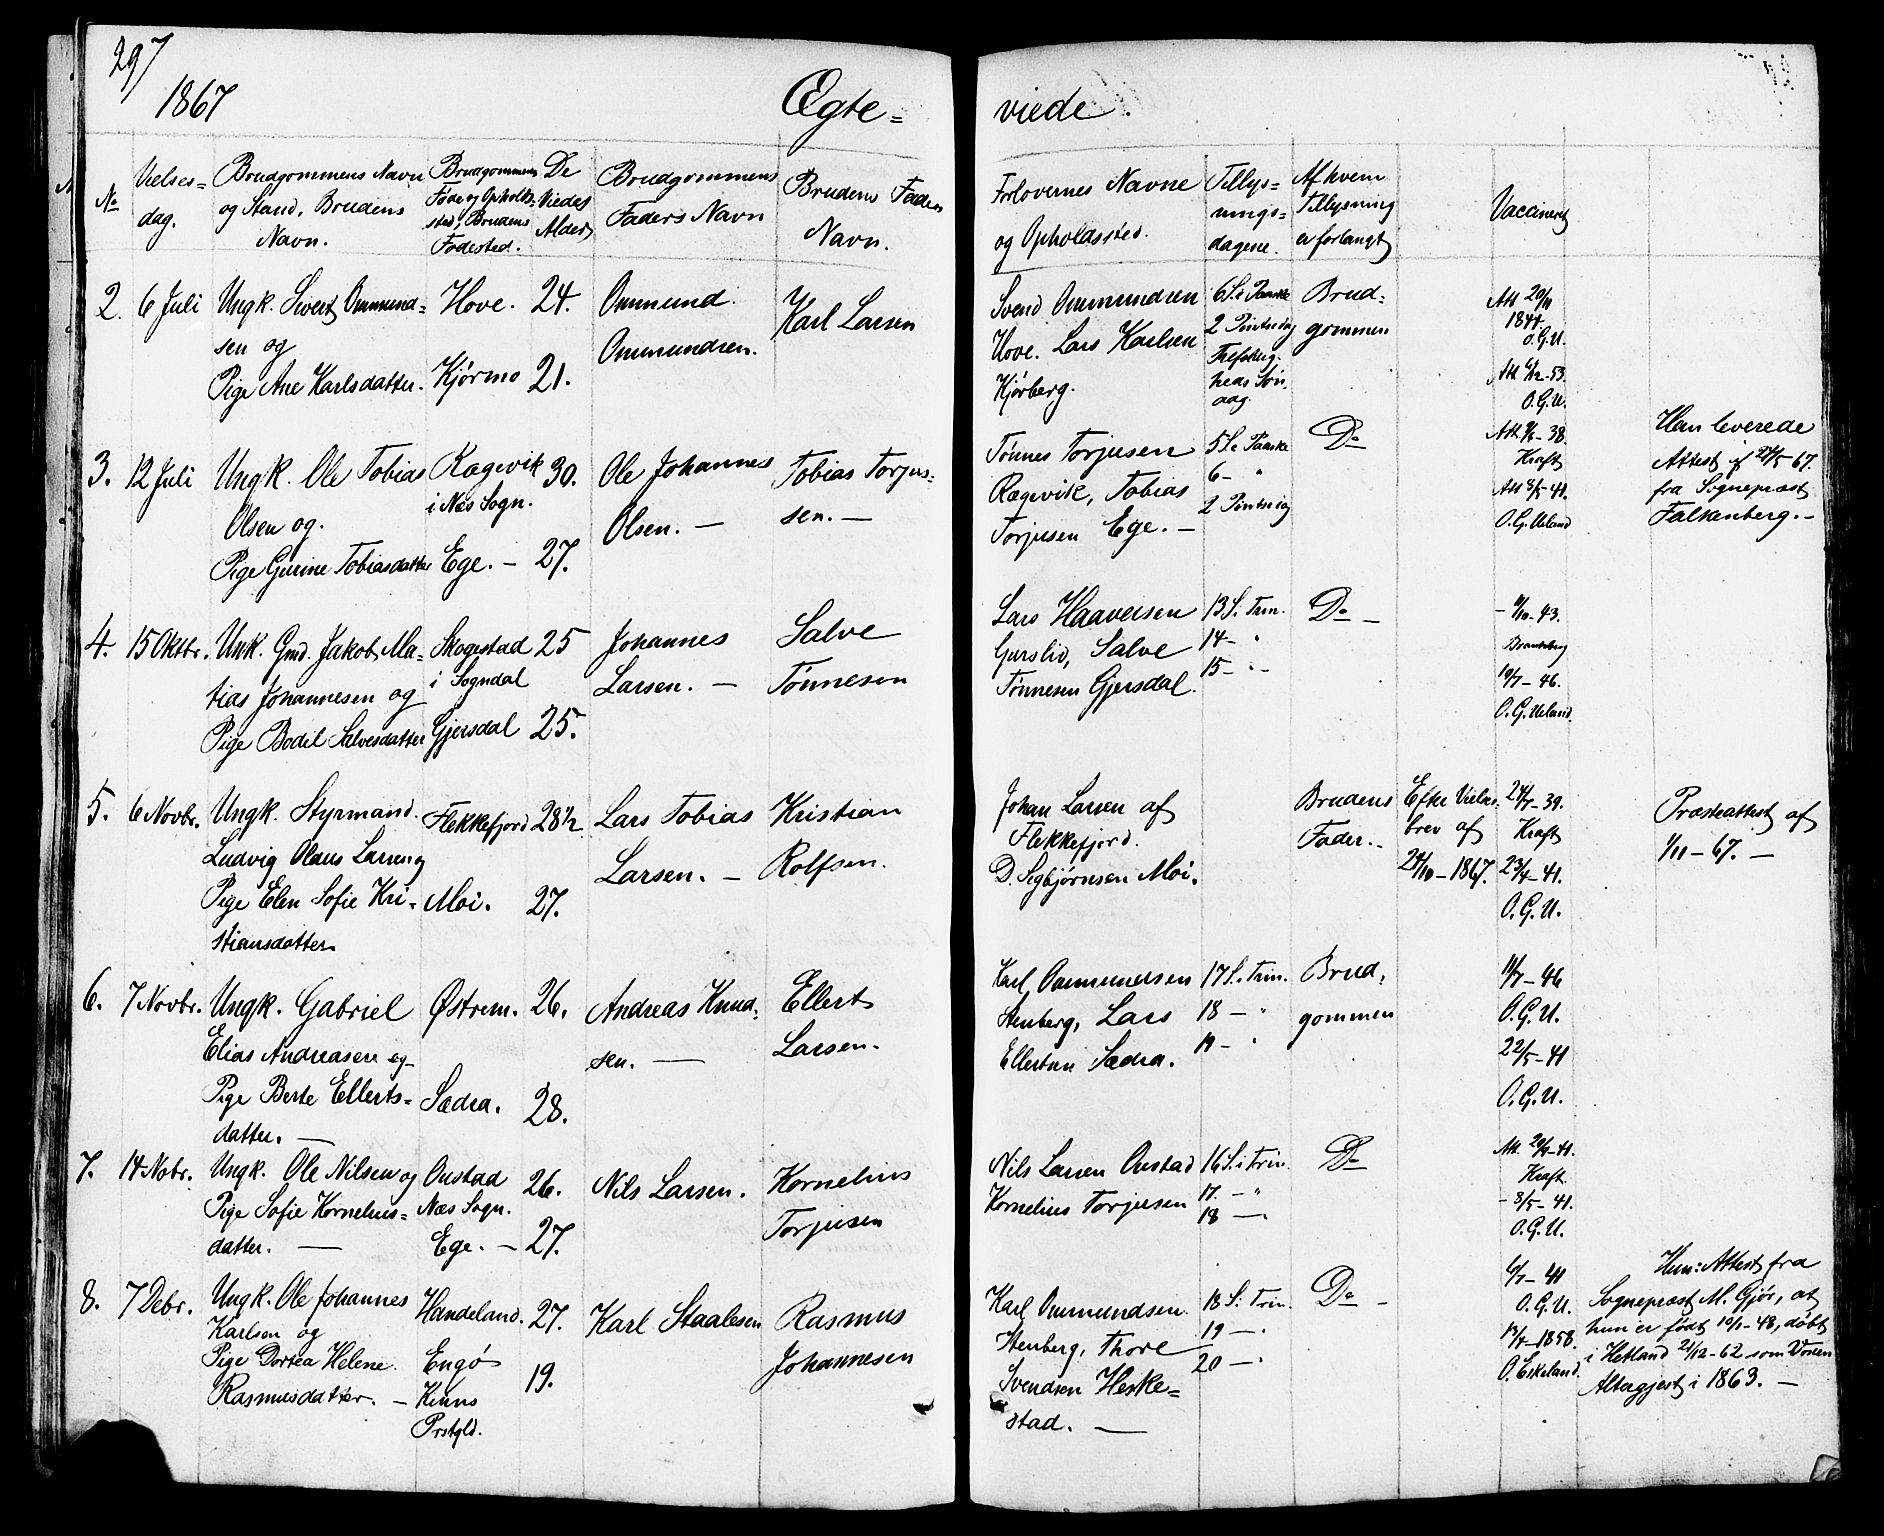 297
1867 Ægte= viede.
No
Vielses=
dag.
Brudgommens Navn
og Stand, Brudens
Navn.
Brudgommens
Føde og Opholds=
sted, Brudens
Fødested.
De
Viedes
Alder
Brudgommens
Faders Navn
Brudens Faders
Navn.
Forlovernes Navne
og Opholdssted.
Tillys=
nings=
dagene.
Af hvem
Tillysning
er forlangt
Vaccineret
2. 6 Juli
Ungk. Sivert Ommund=
sen og
Pige Ane Karlsdatter.
Hove.
Kjørmo
24.
21.
Ommund
Ommundsen.
Karl Larsen
Svend Ommundsen
Hove. Lars Karlsen
Kjørberg.
6 S. e Paaske
2 Pintsedag
Trefoldig=
heds Søn
dag.
Brud=
gommen
Att 20/11
1844
O.G.U.
Att 6/12-53.
O.G.U.
3. 12 Juli
Ungk. Ole Tobias
Olsen og.
Pige Gurine Tobiasdatter
Rægevik
i Næs Sogn.
Ege. -
30.
27.
Ole Johannes
Olsen. -
Tobias Torjus=
sen. -
Tønnes Torjusen
Rægevik, Tobias
Torjusen Ege. -
5 S. e Paaske
6 - "
2 Pintsedag
Do
38.
Kraft
Att 8/5-41.
O.G.Ueland
Han leverede
Attest af 28/5 67.
fra Sognepræst
Falkenberg. -
4. 15 Oktbr.
Ungk. Gmd. Jakob Ma=
tias Johannesen og
Pige Bodil Salvesdatter
Skogestad
i Sogndal
Gjersdal
25
25.
Johannes
Larsen. -
Salve
Tønnesen
Lars Haaversen
Gurslid, Salve
Tønnesen Gjersdal.
13 S. Trin.
14 - "
15 - " -
Do -
- 11/10-43.
10/7-46.
O.G.Ueland.
5. 6 Novbr.
Ungk. Styrmand.
Ludvig Olaus Larsen og
Pige Elen Sofie Kri=
stiansdatter
Flekkefjord
Moi.
28½
27.
Lars Tobias
Larsen. -
Kristian
Rolfsen.
Johan Larsen af
Flekkefjord.
D. Sigbjørnsen Moi.
Brudens
Fader. -
Efter Vielses
brev af
24/10-1867.
24/7-39.
Kraft
23/4-41.
O.G.U.
Præsteattest af
1/11-67. -
6. 7 Novbr.
Ungk. Gabriel
Elias Andreasen og
Pige Berte Ellerts=
datter. -
Østrem.
Sædra.
26.
28.
Andreas Knud=
sen. -
Ellert
Larsen.
Karl Ommundsen
Stenberg, Lars
Ellertsen Sædra.
17 S. Trin.
18 - "
19 - "
Brud=
gommen
14/7-46
O.G.U.
22/5-41
O.G.U.
7. 14 Nobr.
Ungk. Ole Nilsen og
Pige Sofie Kornelius=
datter. -
Onstad
Næs Sogn.
Ege. -
26.
27.
Nils Larsen.
Kornelius
Torjusen
Nils Larsen Onstad
Kornelius Torjusen
16 S. i Trin.
17. - "
18 - "
Do
Att. 20/9-41.
Kraft.
- 8/5-41.
O.G.U.
8. 7 Debr.
Ungk. Ole Johannes
Karlsen og
Pige Dortea Helene
Rasmusdatter. -
Handeland.
Engø
Kinns
Prstgld.
27.
19.
Karl Staalesen
Rasmus
Johannesen
Karl Ommundsen
Stenberg, Thore
Svendsen Heske=
stad. -
18 S. Trin.
19 - "
20 - "
Do -
6/7-41
O.G.U.
14/4-1858.
O. Eskeland.
Hun: Attest fra
Sognepræst M. Gjør, at
hun er født 10/1-48, døbt
i Hetland 21/12-62 som Voxen
Altergjest i 1863. -